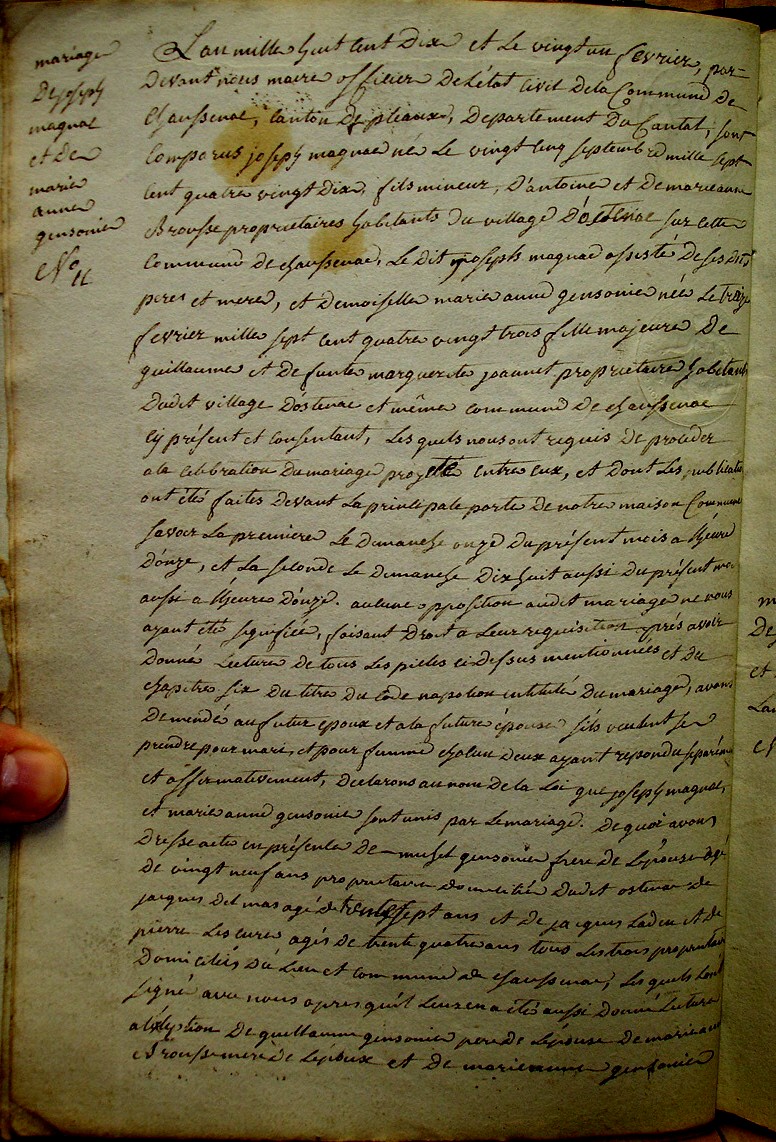 mariage
De joseph
magnac
et De
marie
anne
gensonie
No 11
L'an mille huit cent Dix et Le vingt un fevrier, par-
Devant nous maire officier De L'état Civil De la Commune De
Chaussenac, Canton De pleaux, Departement Du Cantal, sont
Comparus joseph magnac né Le vingt cinq septembre mille sept
cent quatre vingt Dix, fils mineur, D'antoine et De marie anne
Brousse proprietaires habitants du village D'ostenac sur cette
Commune De chaussenac, Le Dit joseph magnac assisté De ses Dits
pere et mere, et Demoiselle marie anne gensonie née Le treize
fevrier mille sept cent quatre vingt trois fille majeure De
guillaume et De funte marguerite joanet proprietaire habitants
Dudit village D'ostenac et même commune De chaussenac
cy présent et consentant, Les quels nous ont requis De proceder
a la celebration Du mariage projetté entre eux, et Dont Les publications
ont été faites Devant La principale porte De notre maison Commune
savoir La premiere Le Dimanche onze Du présent mois a l'heure
D'onze, et La seconde Le Dimanche Dix huit aussi Du présent mois
aussi a l'heure D'onze. aucune opposition audit mariage ne nous
ayant été signifiée, faisant Droit a Leur requisition après avoir
Donné Lecture De tous Les pieces ci Dessus mentionnées et du
chapitre six Du titre Du Code napoleon intitulé Du mariage, avons
Demandé au futur epoux et a la future épouse s'ils veulent se
prendre pour mari, et pour femme chacun Deux ayant repondu séparément
et affirmativement, Declarons au nom De la Loi que joseph magnac,
et marie anne gensonie sont unis par Le mariage. De quoi avons
Dressé acte en présence De gensonie frere De L'épouse agé
De vingt neuf ans proprietaire Domicilié Dudit ostenac De
jacques Delmas agé De trente sept ans et De jacques Ladeu et De
pierre Lescure agés De trente quatre ans tous Les trois proprietaires
Domiciliés Du Lieu et commune De chaussenac, Les quels Sont
signé avec nous apres qu'il Leur en a été aussi Donné Lecture
a l'exeption De guillaume gensonie pere De L'épouse De marie anne
Brousse mere De L'epoux et De marie anne gensonie